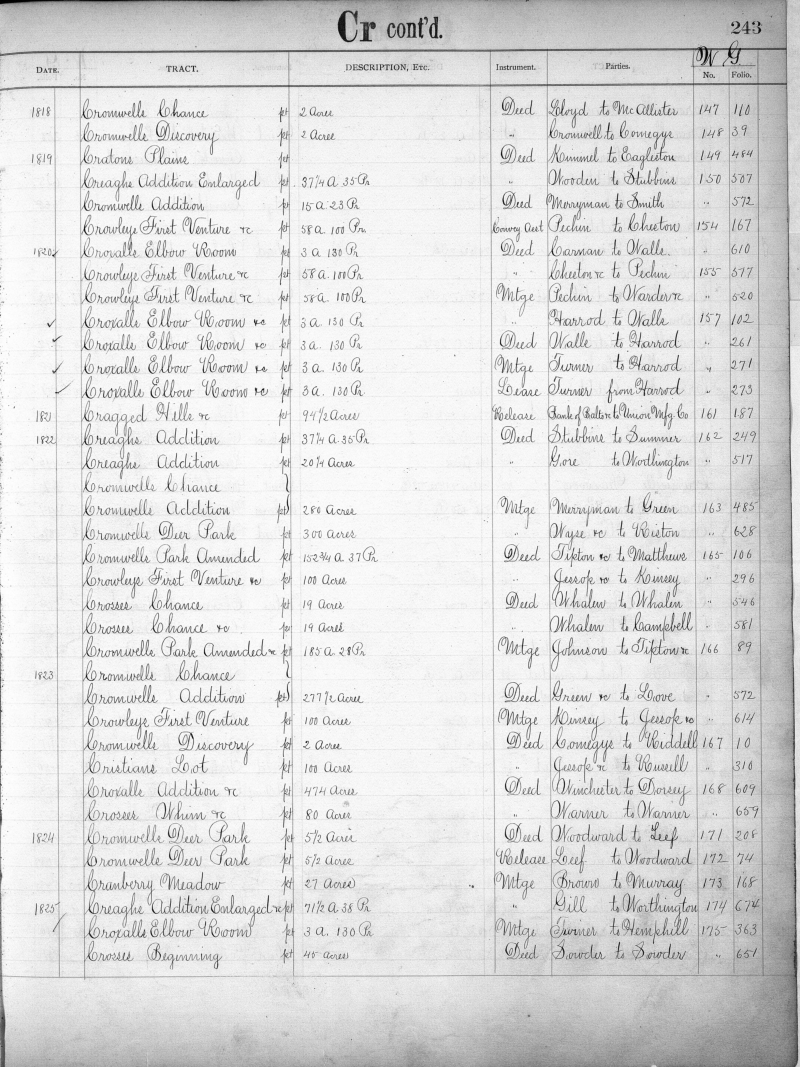 Cr cont'd.
243
W G
DATE. TRACT. DESCRIPTION, ETC. Instrument. Parties. No. Folio.
1818 Cromwells Chance pt 2 Acres Deed Lloyd to McAllister 147 110
Cromwells Discovery pt 2 Acre " Cromwell to Comegys 148 39
1819 Cratons Plains pt Deed Kimmel to Eagleston 149 484
Creaghs Addition Enlarged pt 37 1/4 A 35 Pr " Wooden to Stubbins 150 507
Cromwells Addition pt 15 A 23 Pr Deed Merryman to Smith " 572
Crowleys First Venture &c pt 58 a 100 Prs Convey Aset Pechin to Cheston 154 167
1820 ✓ Croxalls Elbow Room pt 3 a 130 Pr Deed Carnan to Walls " 610
Crowleys First Venture &c pt 58 a. 100 Pr " Cheston &c to Pechin 155 577
Crowleys First Venture &c pt 58 a. 100 Pr Mtge Pechin to Warder &c " 520
✓ Croxalls Elbow Room &c pt 3 a. 130 Pr " Harrod to Walls 157 102
✓ Croxalls Elbow Room &c pt 3 a. 130 Pr Deed Walls to Harrod " 261
✓ Croxalls Elbow Room &c pt 3 a. 130 Pr Mtge Turner to Harrod " 271
✓ Croxalls Elbow Room &c pt 3 a. 130 Pr Lease Turner from Harrod " 273
1821 Cragged Hills &c pt 94 1/2 Acres Release Bank of Balto &c to Union Mfg. Co 161 187
1822 Creaghs Addition pt 37 1/4 a 35 Pr Deed Stubbins to Sumner 162 249
Creaghs Addition pt 20 1/4 Acres " Gore to Worthington " 517
Cromwells Chance }
Cromwells Addition pt } 280 Acres Mtge Merryman to Green 163 485
Cromwells Deer Park pt 300 acres " Wyse &c to Riston " 628
Cromwells Park Amended pt 152 3/4 a. 37 Pr Deed Tipton &c to Matthews 165 106
Crowleys First Venture &c pt 100 Acres " Jessop &c to Kinsey " 296
Crosses Chance pt 19 Acres Deed Whalen to Whalen " 546
Crosses Chance &c pt 19 Acres " Whalen to Campbell " 581
Cromwells Park Amended &c pt 185 a. 28 Pr Mtge Johnson to Tipton &c 166 89
1823 Cromwells Chance }
Cromwells Addition pt } 277 1/2 Acres Deed Green &c to Love " 572
Crowleys First Venture pt 100 Acres Mtge Kinsey to Jessop &c " 614
Cromwells Discovery pt 2 Acre Deed Comegys to Riddell 167 10
Cristians Lot pt 100 Acres " Jessop &c to Russell " 310
Croxalls Addition &c pt 474 Acres Deed Winchester to Dorsey 168 609
Crosses Whim &c pt 80 Acres " Warner to Warner " 659
1824 Cromwells Deer Park pt 5 1/2 Acres Deed Woodward to Leef 171 208
Cromwells Deer Park pt 5 1/2 Acres Release Leef to Woodward 172 74
Cranberry Meadow pt 27 Acres Mtge Brown to Murray 173 168
1825 Creaghs Addition Enlarged &c pt 71 1/2 A 38 Pr " Gill to Worthington 174 674
✓ Croxalls Elbow Room pt 3 a. 130 Pr Mtge Turner to Hemphill 175 363
Crosses Beginning pt 45 Acres Deed Sowder to Sowder " 651